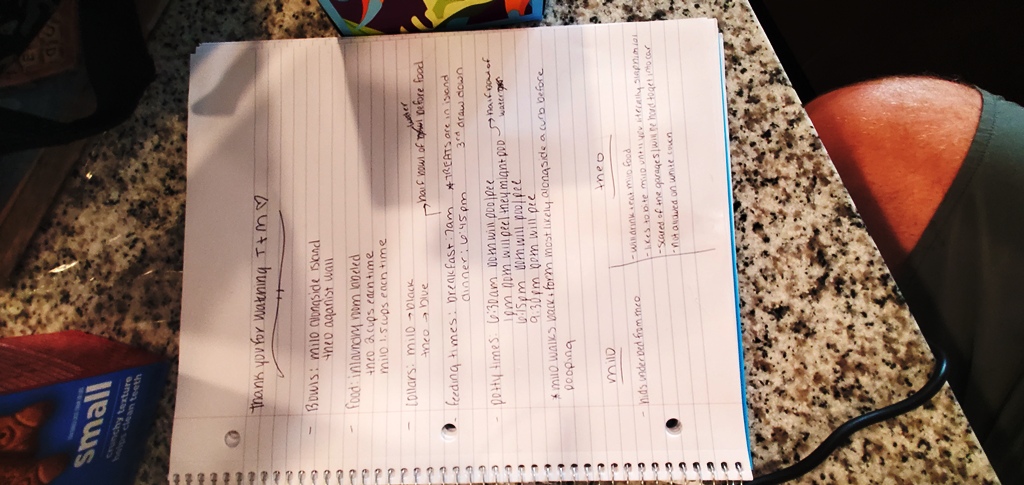 thank you for watching T+M ♡
- Bowls: milo alongside island
theo aganist wall
- food: in laundry room labeled
theo 2 cups each time
milo 1.5 cups each time
- collars: milo → black
theo → blue
→ half bowl of water before food
- feeding times: breakfast: 7am
dinner: 6:45 pm
* TREATS are in island
3rd draw down
- potty times 6:30am both will poo/pee
1pm both will pee/they might poo → half bowl of water
6:15pm both will poo/pee
9:30pm both will pee
* milo walks back + forth most likely alongside a curb before
pooping
milo
- hides under bed from theo
theo
- will drink + eat milo food
- likes to bite milo until you
- scared of the garages/will be hard to get into car
- not allowed on white couch
small
crunchy texture
clean teeth